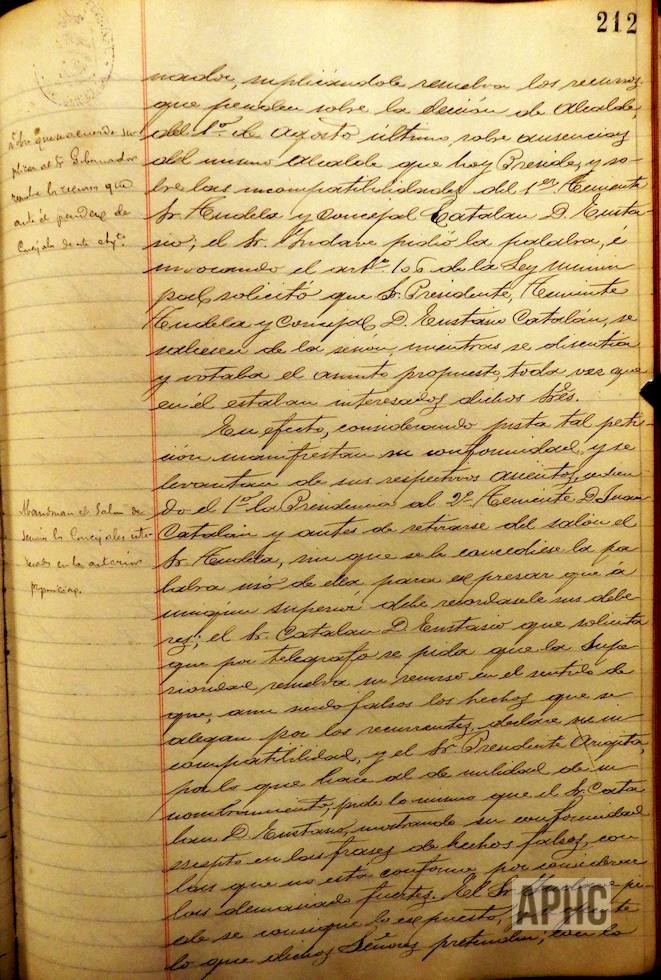 212
nador, suplicándole resuelva los recursos
que penden sobre la elección de Alcalde,
del 1º de Agosto último sobre ausencias
del mismo Alcalde que hoy Preside, y so-
bre las incompatibilidades del 1er Teniente
Sr. Tudela y Concejal Catalan D. Eusta-
sio; el Sr. Yndave pidió la palabra, é
invocando el artº 106 de la Ley Munici-
pal, solicitó que Sr. Presidente, Teniente
Tudela y Concejal D. Eustasio Catalán, se
saliesen de la sesión, mientras se discutía
y votaba el asunto propuesto, toda vez que
en él estaban interesados dichos Sres.
En efecto, considerando justa tal peti-
ción manifiestan su conformidad, y se
levantan de sus respectivos asientos, cedien-
do el 1º la Presidencia al 2º Teniente D. Juan
Catalán y antes de retirarse del salón el
Sr. Tudela, sin que se le concediese la pa-
labra usó de ella para expresar que á
ningún superior debe recordarsele sus debe-
res; el Sr. Catalan D. Eustasio que solicita
que por telegrafo se pida que la Supe-
rioridad resuelva su recurso en el sentido de
que, aun siendo falsos los hechos que se
alegan por los recurrentes, declare su in-
compatilidad, y el Sr. Presidente Argaita,
por lo que hace al de nulidad de su
nombramiento, pide lo mismo que el Sr. Cata
lan D. Eustasio, mostrando su conformidad
respeto en las frases de hechos falsos, con
las que no esta conforme por considerar
las demasiado fuertes. El Sr. pi-
de se consigne lo expuesto,
lo que dichos Señores pretenden, con lo
Sobre que se acuerde su
plicar al Sr. Gobernador
resuelva los recursos que
ante él penden de
Concejales de este Aytº.
Abandonan el Salon de
Sesiones los Concejales inte-
resados en la anterior
proposición.
APHC